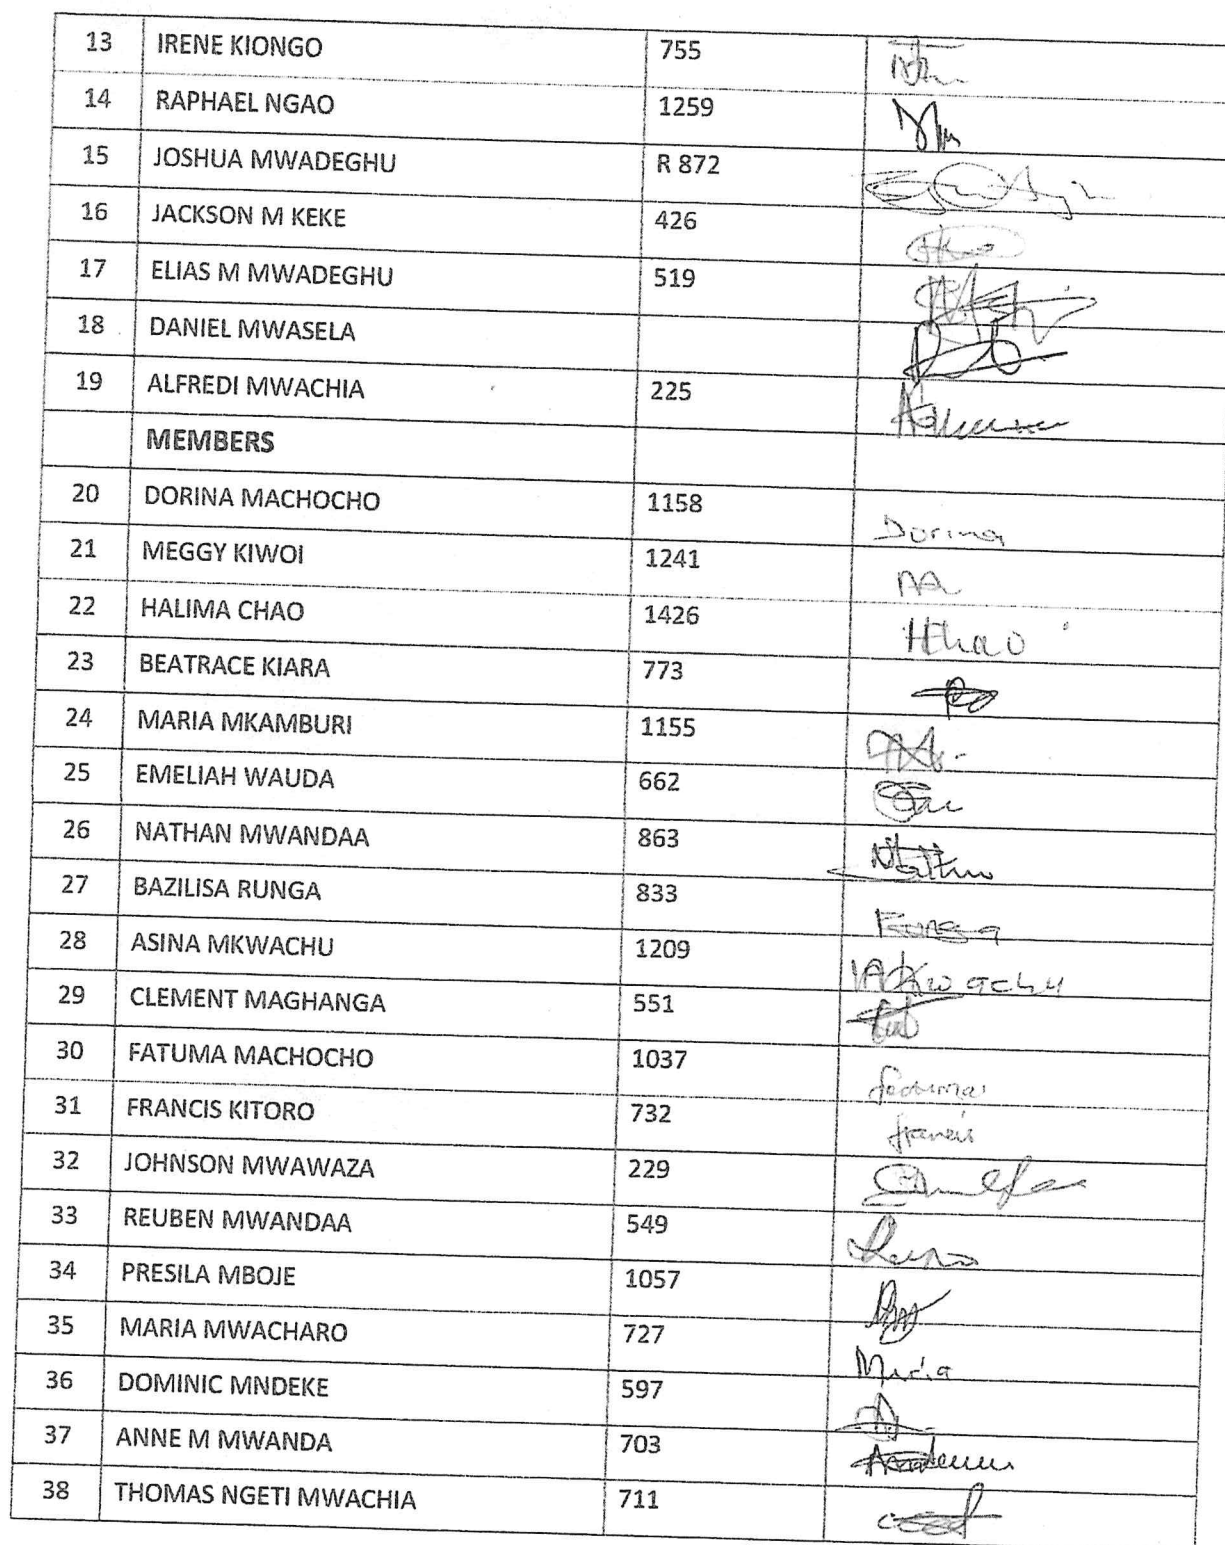 13 IRENE KIONGO 755
14 RAPHAEL NGAO 1259
15 JOSHUA MWADEGHU R 872
16 JACKSON M KEKE 426
17 ELIAS M MWADEGHU 519
18 DANIEL MWASELA
19 ALFREDI MWACHIA 225
MEMBERS
20 DORINA MACHOCHO 1158 Dorina
21 MEGGY KIWOI 1241
22 HALIMA CHAO 1426 HChao
23 BEATRACE KIARA 773
24 MARIA MKAMBURI 1155
25 EMELIAH WAUDA 662
26 NATHAN MWANDAA 863
27 BAZILISA RUNGA 833
28 ASINA MKWACHU 1209
29 CLEMENT MAGHANGA 551
30 FATUMA MACHOCHO 1037
31 FRANCIS KITORO 732 francis
32 JOHNSON MWAWAZA 229
33 REUBEN MWANDAA 549
34 PRESILA MBOJE 1057
35 MARIA MWACHARO 727 Maria
36 DOMINIC MNDEKE 597
37 ANNE M MWANDA 703
38 THOMAS NGETI MWACHIA 711